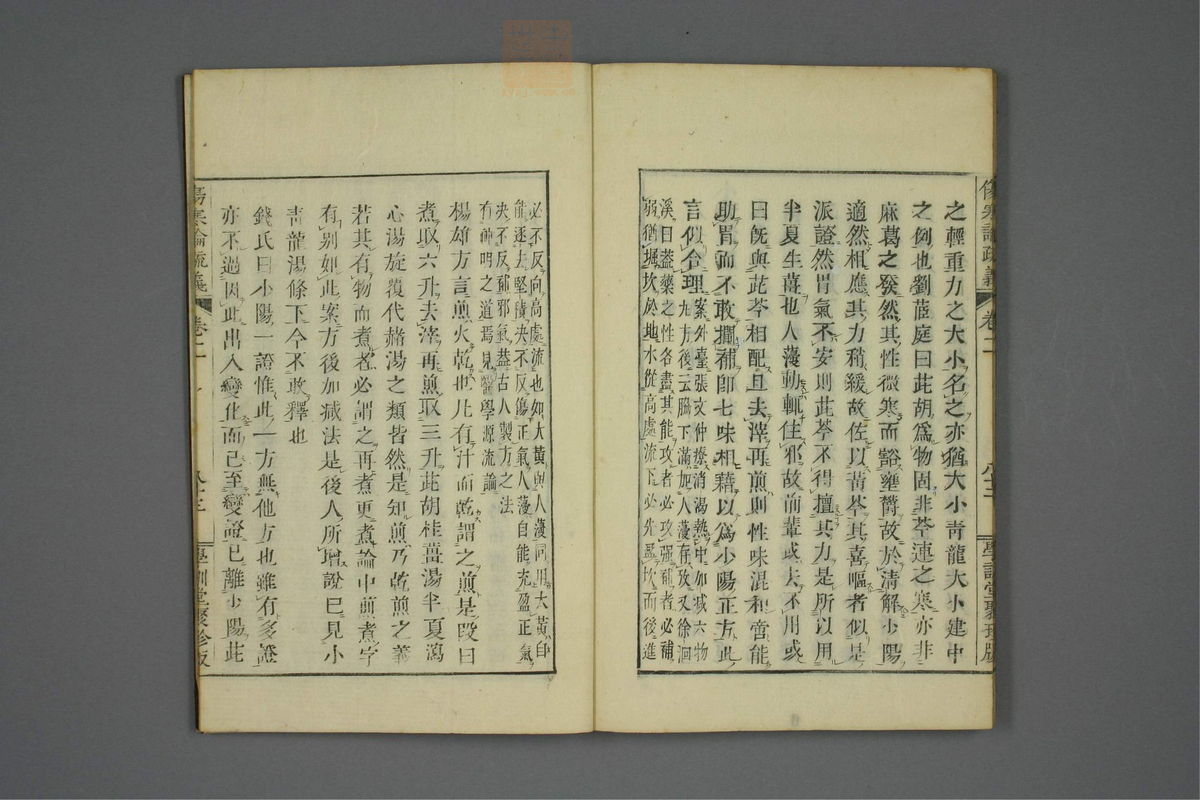 之輕重力之大小名之亦猶大小青龍大小建中
之例也劉茝庭曰茈胡爲物固非芩連之寒亦非
麻葛之發然其性微寒而豁壅鬱故於清解少陽
適然相應其力稍緩故佐以黃芩其喜嘔者似是
派證然胃氣不安則茈芩不得擅其力是所以用
半夏生薑也人薓動輒住邪故前輩或去不用或
曰旣與茈芩相配且去滓再煎則性味混和啻能
助胃而不敢擱補卽七味相藉以爲少陽正方此
言似合理
案外臺張文仲療消渴熱中加減六物
丸方後云臨下滿加人薓存攷又徐洄
溪曰蓋藥之性各盡其能攻者必攻强補者必補
弱猶堀坎於地水從高處流下必先盈坎而後進
必不反向高處流也如大黃與人薓同用大黃自
能逐去堅積决不反傷正氣人薓自能充盈正氣
决不反補邪氣蓋古人製方之法
有神明之道焉見醫學源流論
楊雄方言煎火乾也凡有汁而乾謂之煎是段曰
煮取六升去滓再煎取三升茈胡桂薑湯半夏瀉
心湯旋覆代赭湯之類皆然是知煎乃乾煎之義
若其有物而煮者必謂之再煮更煮論中煎煮字
有別如此案方後加減法是後人所增說已見小
靑龍湯條下今不敢釋也
錢氏曰少陽一證惟此一方無他方也雖有多證
亦不過因此出入變化而已至變證已離少陽此
傷寒論疏義
卷二
八十三
學訓堂聚珍版